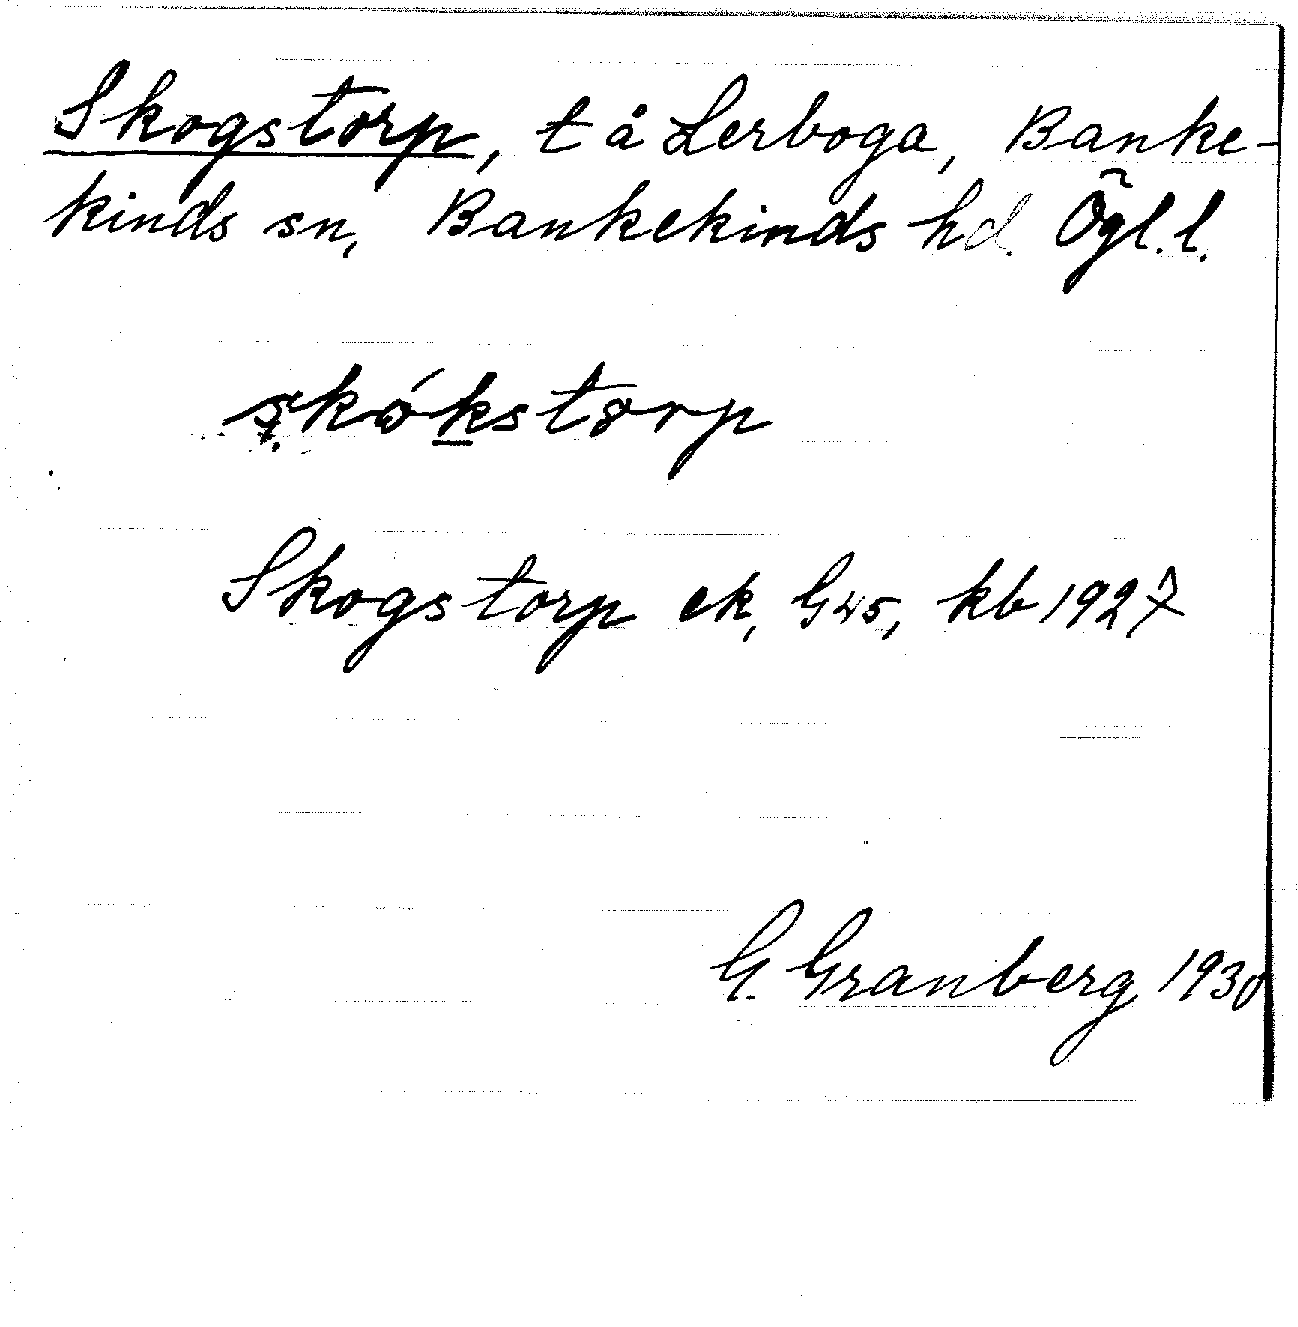 Skogstorp, t å Lerboga, Banke-
kinds sn, Bankekinds hd. Ögl.l.
skókstorp
Skogstorp ek, G45, kb 1927
G. Granberg 1930